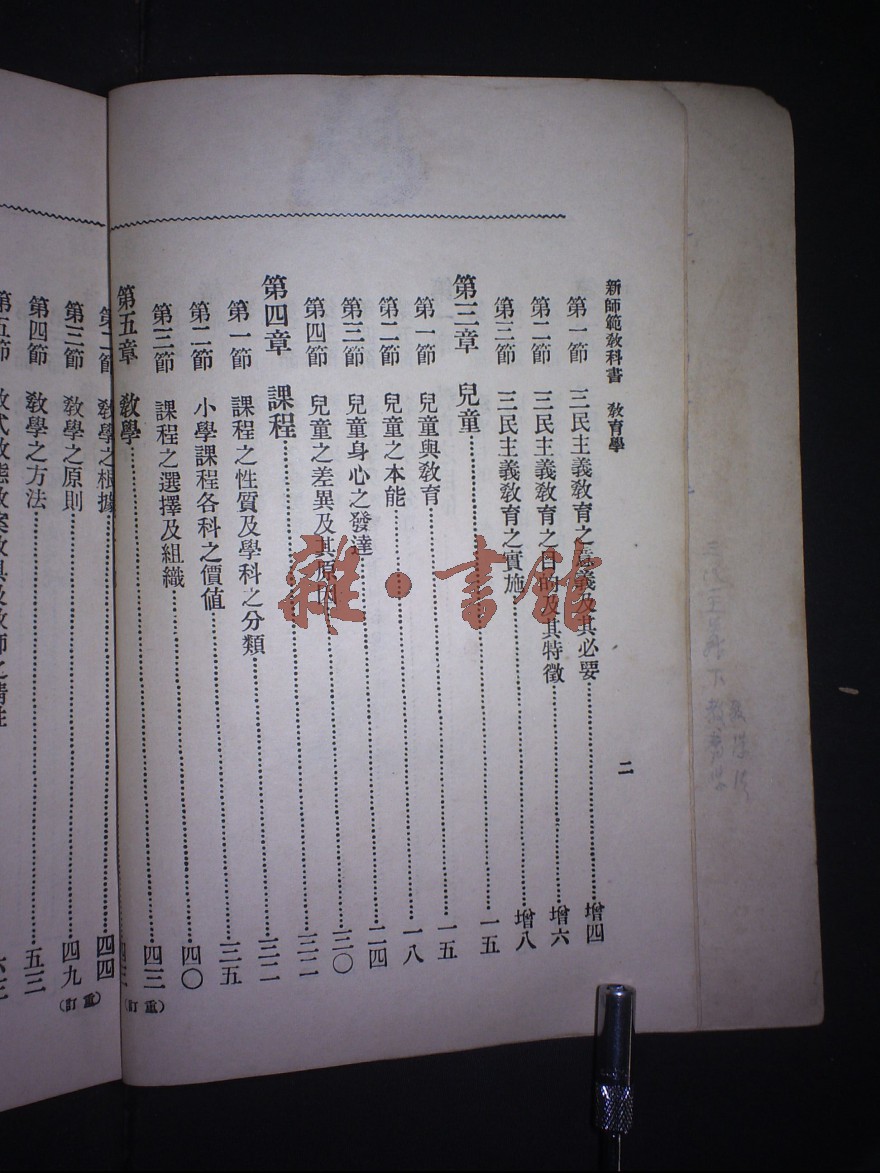 新師範教科書　教育學
二
第一節　三民主義教育之意義及其必要……增四
第二節　三民主義教育之目的及其特徵……增六
第三節　三民主義教育之實施……增八
第三章　兒童……一五
第一節　兒童與教育……一五
第二節　兒童之本能……一八
第三節　兒童身心之發達……二四
第四節　兒童之差異及其原因……三〇
第四章　課程……三二
第一節　課程之性質及學科之分類……三二
第二節　小學課程各科之價值……三五
第三節　課程之選擇及組織……四〇
第五章　教學……四三（重訂）
教學之根據……四四
第三節　教學之原則……四九（重訂）
第四節　教學之方法……五三
第五節
雜·書館